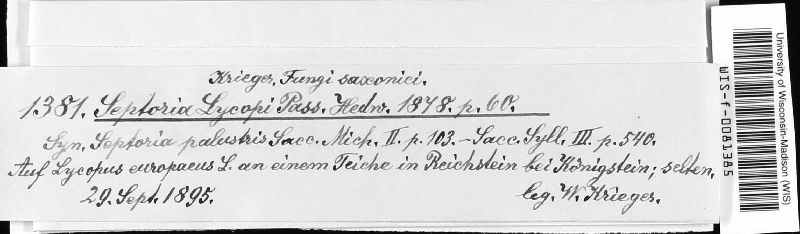 Krieger, Fungi saxonici.
1381. Septoria Lycopi Pass. Hedw. 1878. p. 60.
Syn. Septoria palustris Sacc. Mich. II. p. 103. – Sacc. Syll. III. p. 540.
Auf Lycopus europaeus L. an einem Teiche in Reichstein bei Königstein; selten.
29. Sept. 1895. leg. W. Krieger.
University of Wisconsin-Madison (WIS)
WIS-f-0081385